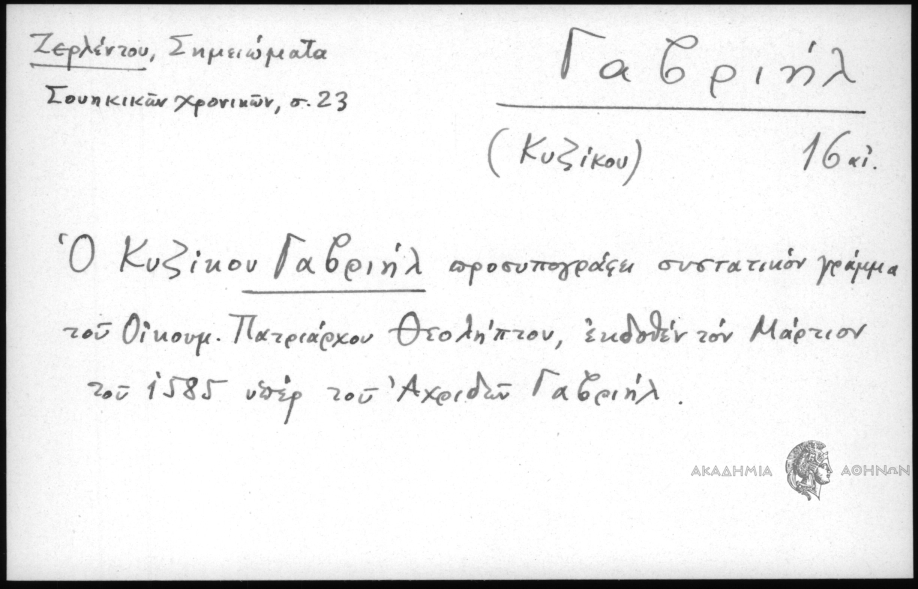 Ζερλέντου, Σημειώματα
Σουηκικῶν χρονικῶν, σ. 23
Γαβριήλ
(Κυζίκου) 16 αἰ.
Ὁ Κυζίκου Γαβριήλ προσυπογράφει συστατικόν γράμμα
τοῦ Οἰκουμ. Πατριάρχου Θεολήπτου, ἐκδοθέν τόν Μάρτιον
τοῦ 1585 ὑπέρ τοῦ Ἀχριδῶν Γαβριήλ.
ΑΚΑΔΗΜΙΑ ΑΘΗΝΩΝ